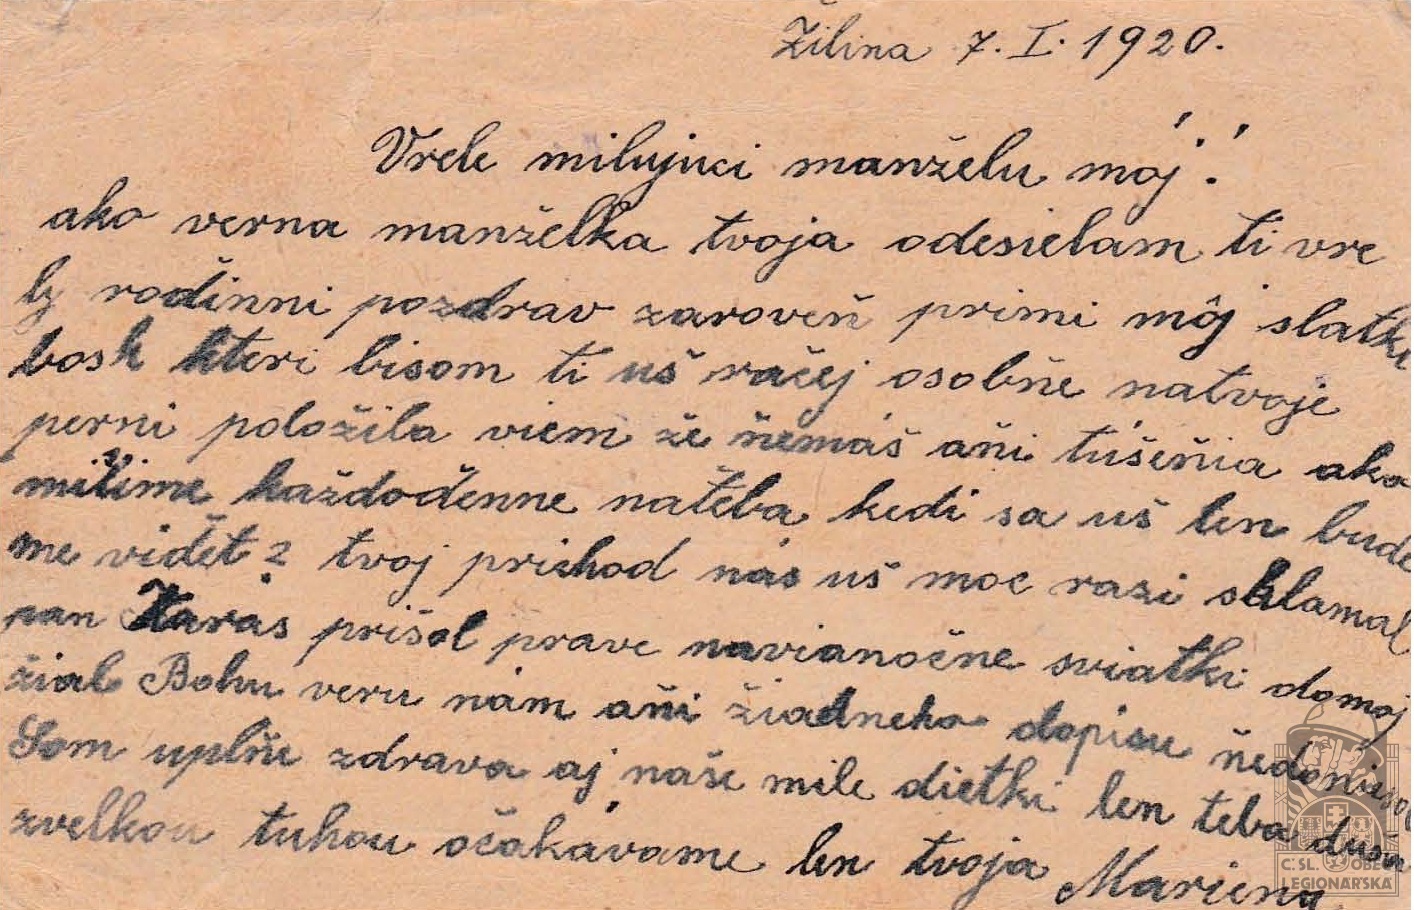 Žilina 7. I. 1920.
Vrele milujuci manželu mój!
ako verna manželka tvoja odesielam ti vre
ly rodinni pozdrav zaroveň primi môj slatki
bosk kteri bisom ti uš račej osobňe natvoje
perni položila viem že ňemáš aňi túšeňia ako
mislime každodenne naťeba kedi sa uš len bude
me viďeť? tvoj prichod nás uš moc razi sklamal
pan Karas prišol prave navianočne sviatki domoj
žial Bohu veru nám aňi žiadneho dopisu ňedoniesol
Som uplňe zdrava aj naše mile dietki len teba duša
zvelkou tuhou očakávame len tvoja Mariena
C.SL. OBEC
LEGIONÁŘSKÁ